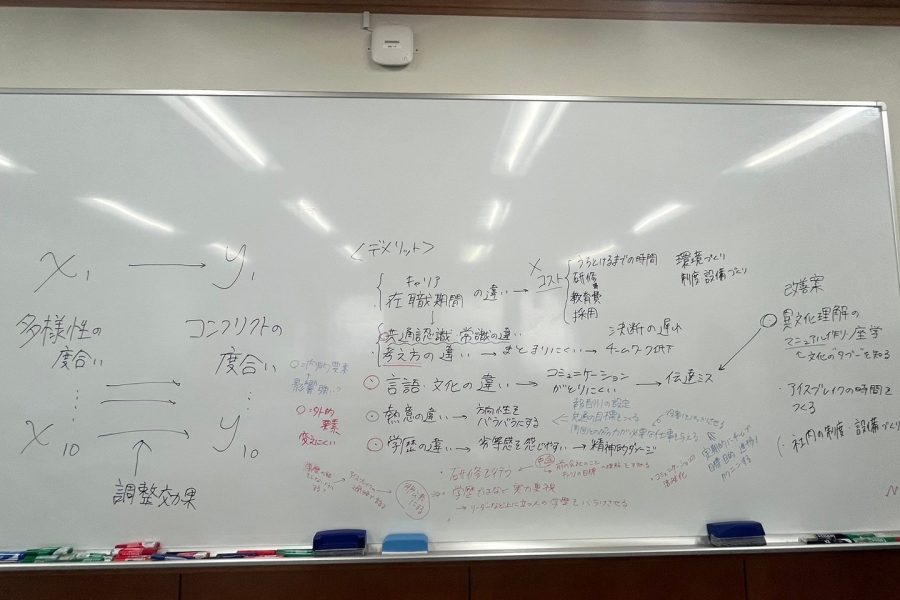 x₁ → y₁
多様性の
度合い
コンフリクトの
度合い
x₁₀ → y₁₀
調整効果
<デメリット>
キャリア
在職期間 の違い → コスト
×
うちとけるまでの時間
研修
教育費
採用
環境づくり
制度 設備づくり
共通認識 常識の違い
・考え方の違い → まとまりにくい → チームワーク低下
決断の遅れ
言語・文化の違い → コミュニケーション
がとりにくい → 伝達ミス
熱意の違い → 方向性を
バラバラにする
学歴の違い → 劣等感を感じやすい → 精神的ダメージ
○=内的要素
影響強い?
○=外的
要素
変えにくい
共通の目標をつくる
・研修を行う
・学歴ではなく実力重視
→リーダーなど上に立つ人の学歴をバラつかせる
・コミュニケーションの
活性化
改善案
異文化理解の
マニュアル作り・座学
文化のタブーを知る
・アイスブレイクの時間を
つくる
・社内の制度 設備づくり